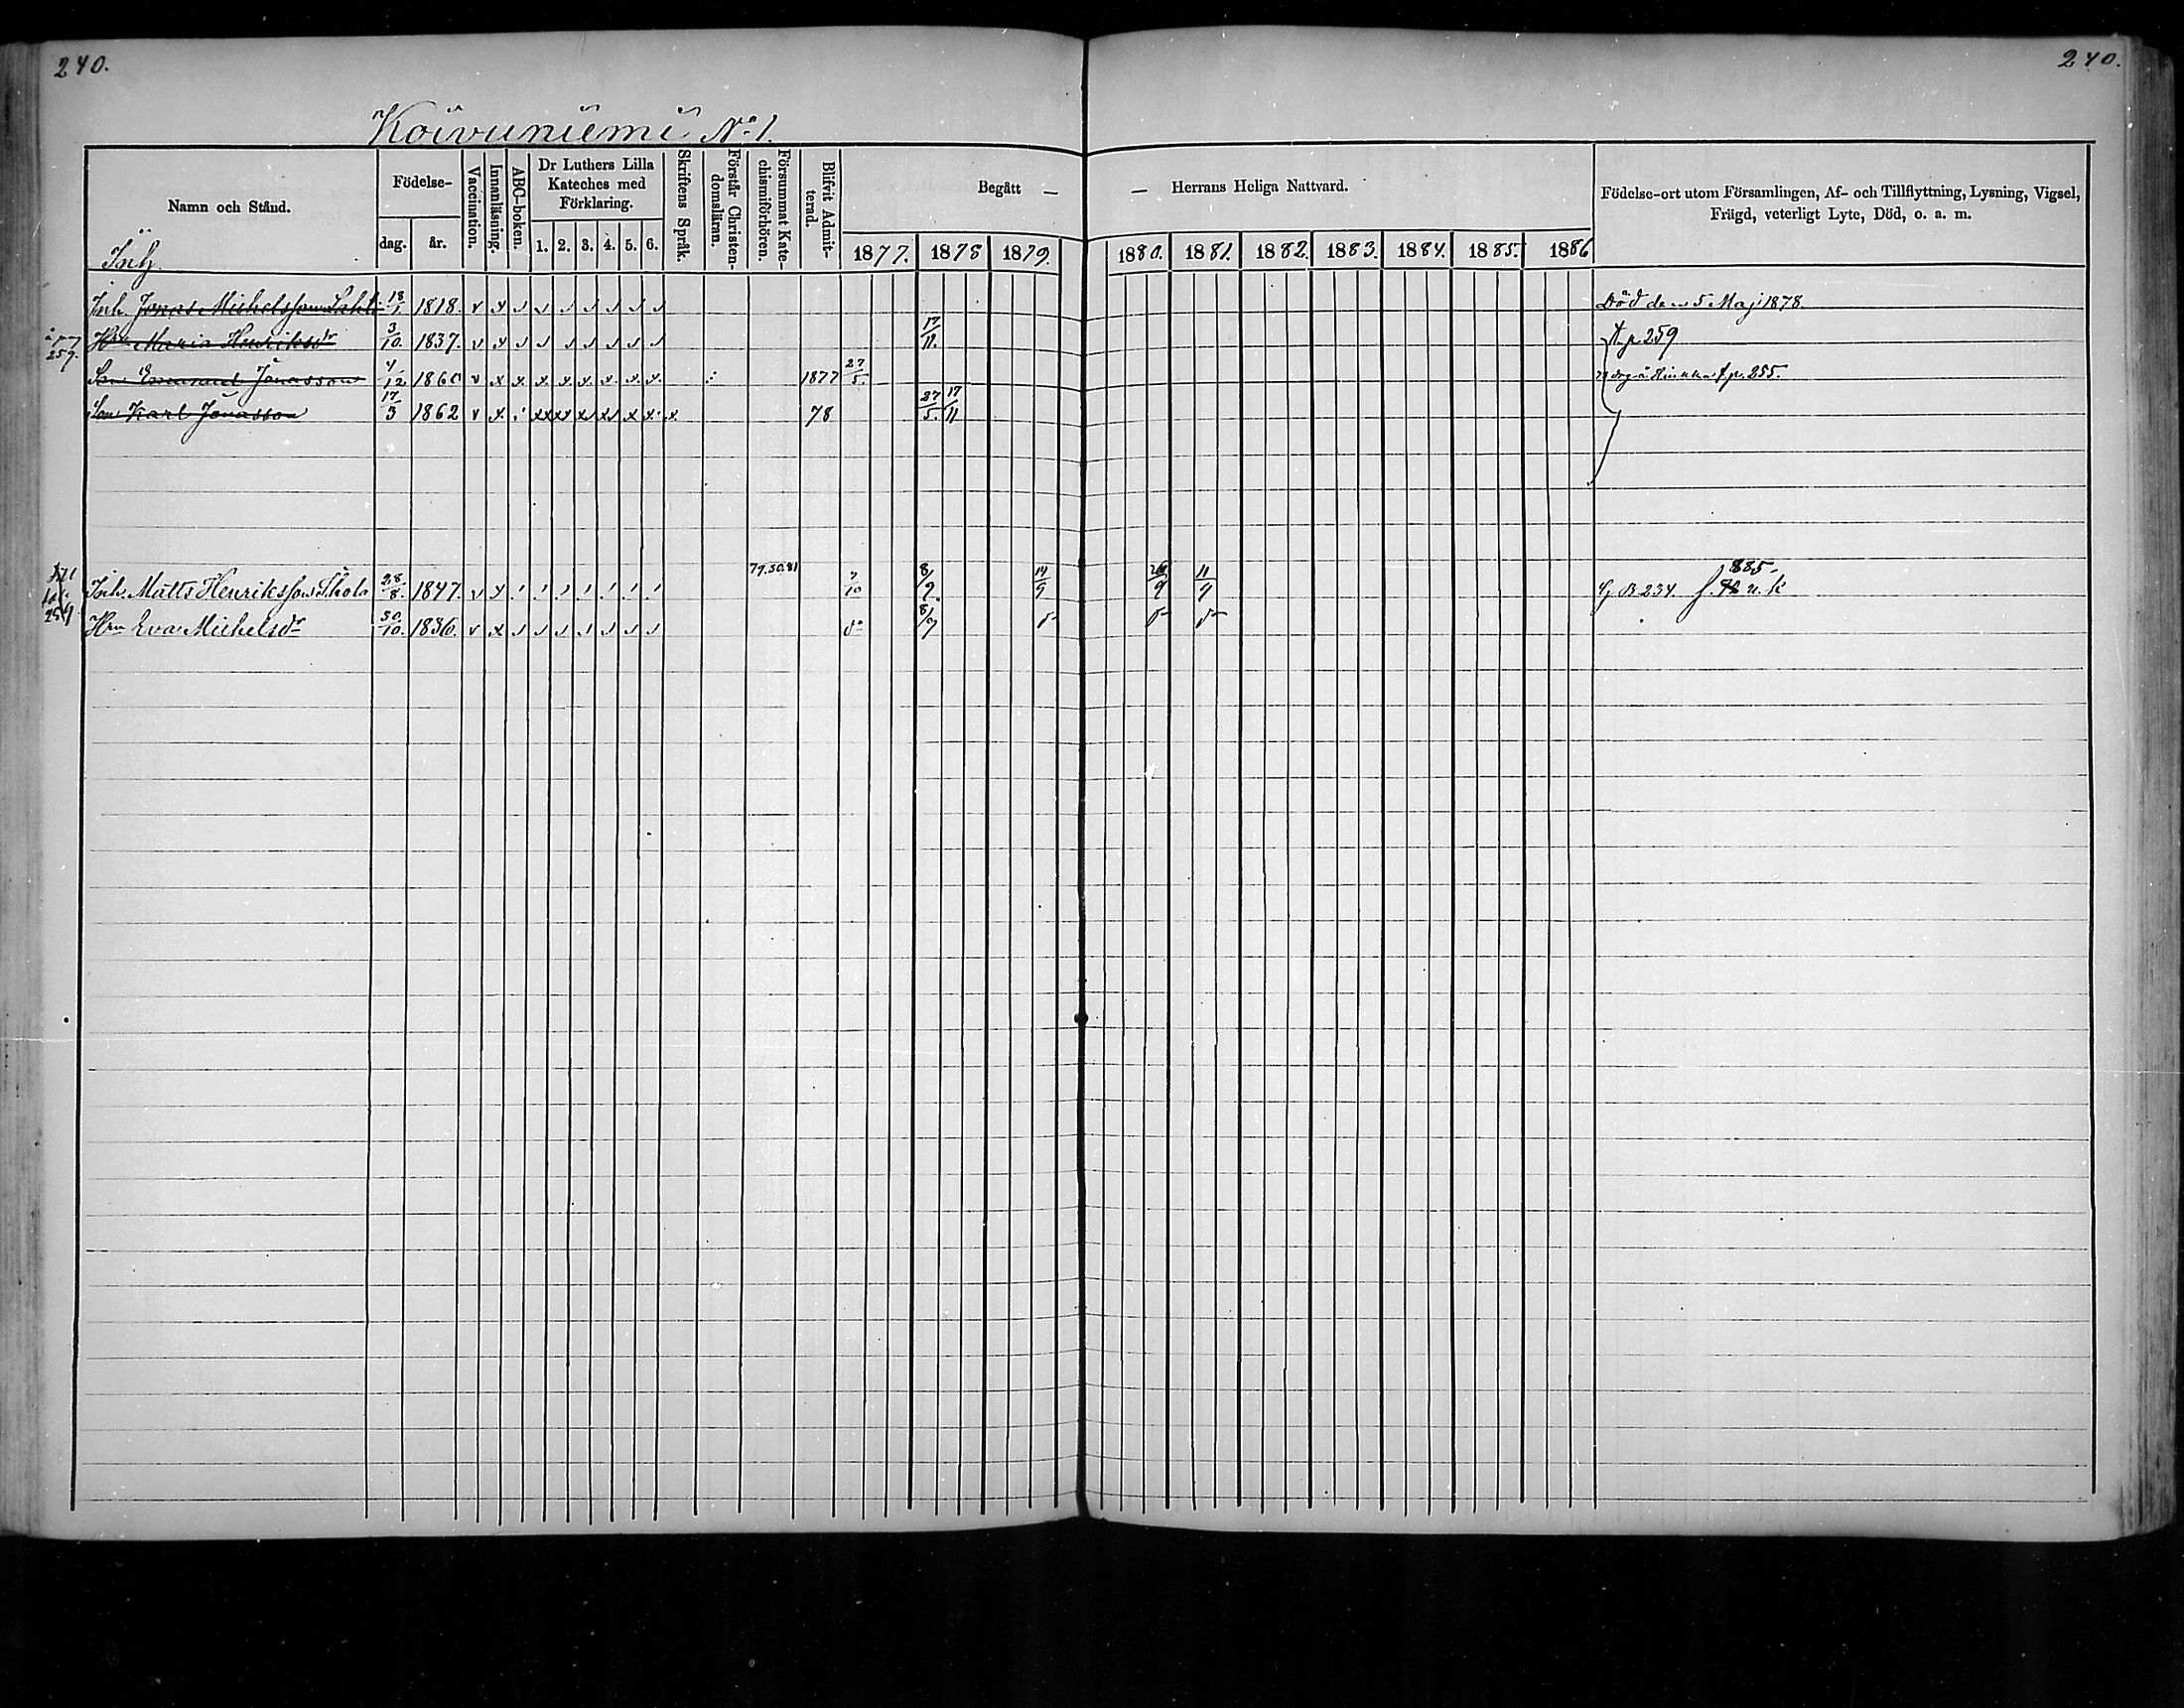 240.
240.
Koivuniemi No 1.
Namn och Stånd.
Födelse-
dag.
år.
Vaccination.
Innanläsning.
ABC-boken.
Dr Luthers Lilla
Kateches med
Förklaring.
1. 2. 3. 4. 5. 6.
Skriftens Språk.
Förstår Christen-
domsläran.
Försummat Kate-
chismiförhören.
Blifvit Admit-
terad.
Begått —
— Herrans Heliga Nattvard.
1877. 1878 1879. 1880. 1881. 1882. 1883. 1884. 1885. 1886
Födelse-ort utom Församlingen, Af- och Tillflyttning, Lysning, Vigsel,
Frägd, veterligt Lyte, Död, o. a. m.
Inh.
Inh. Jonas Michelsson Lahti 18/1 1818. Död den 5 Maj 1878
259. Hru Maria Henriksdr 3/10 1837. 17/11. p 259
Son Emanuel Jonasson 4/12 1860 1877 27/5. p. 255.
Son Karl Jonasson 17/3 1862 78 27/5. 17/11
Inh. Matts Henriksson 28/8 1847. 79.80.81 7/10 8/9. 14/9 26/9 11/9 B 234 885.
Hru Eva Michelsdr 30/10. 1836. do 8/9